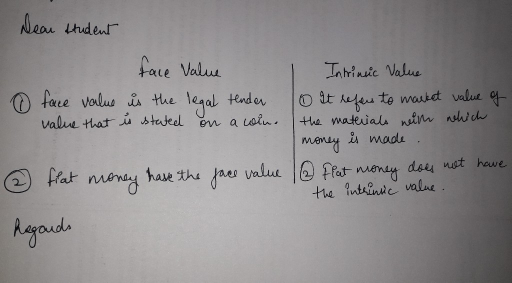 Dear student
Face Value
① face value is the legal tender
value that is stated on a coin.
② fiat money have the face value
Intrinsic Value
① It refers to market value of
the materials with which
money is made.
② Fiat money does not have
the intrinsic value.
Regards